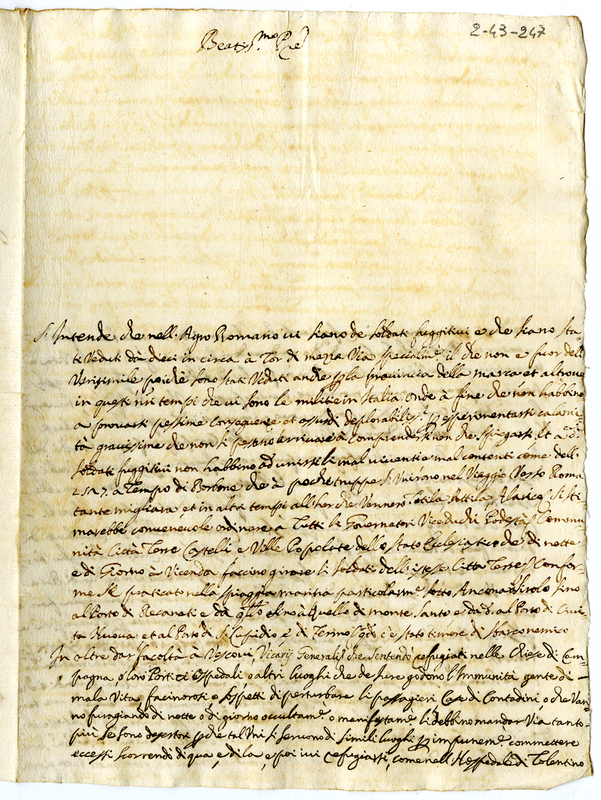 2-43-247
Beatis.mo Pre
Si Intende che nell'Agro Romano vi siano de soldati fuggitivi e che siano sta
ti veduti da dieci in circa à Tor di mezza Via specialme. il che non e fuor del
Verisimile poiche sono stati Veduti anche per la Provincia della marca et altrove
in questi ultimi tempi che vi sono le militie in Italia onde à fine che non habbino
a provarsi pessime conseguenze et assurdi deplorabili e per esperimentarsi calami
ta gravissime che non si possono arrivare à comprendere non che spiegarsi. Et a
soldati fuggitivi non habbino ad unirsi li mal viventi e mal contenti come dell'
1527. a Tempo di Borbone che à poche truppe si Unirono nel Viaggio Verso Roma
tante migliara et in altri tempi all'hor che Vennero Totila, Attila, Alarico, si sti
marebbe convenevole ordinare a Tutti li Governatori Viceduchi Podestà, Commu
nità Città Terre Castelli e Ville Popolate dello Stato Ecclesiastico che di notte
e di Giorno à Vicenda faccino girare li soldati dell'istesse Città Terre Confor
me si è praticato nella spiaggia marina particolarme. sotto Ancona Sirolo sino
al Porto di Recanati e da sino à quello di monte santo e da al Porto di Civi
ta Nuova et al Porto di S. Elpidio e di Fermo è stato timore di
In oltre dar facoltà à Vescovi, Vicarij Generali che sentendo refugiati nelle Chiese di Cam
pagna o loro Portici Ospedali o altri luoghi che de jure godono l'Immunità gente di
mala Vita, facinorosi e sospetti di perturbare li passagieri Case di Contadini o che Van
no furagiando di notte o di giorno occultame. o manifestame. li debbino mandar Via tanto
più se sono desertori perche tal Uni si servono di simili luoghi per impuneme. commettere
eccessi scorrendo di qua, e di la, e poi ivi refugiarsi, come nell'Hospedale di Tolentino